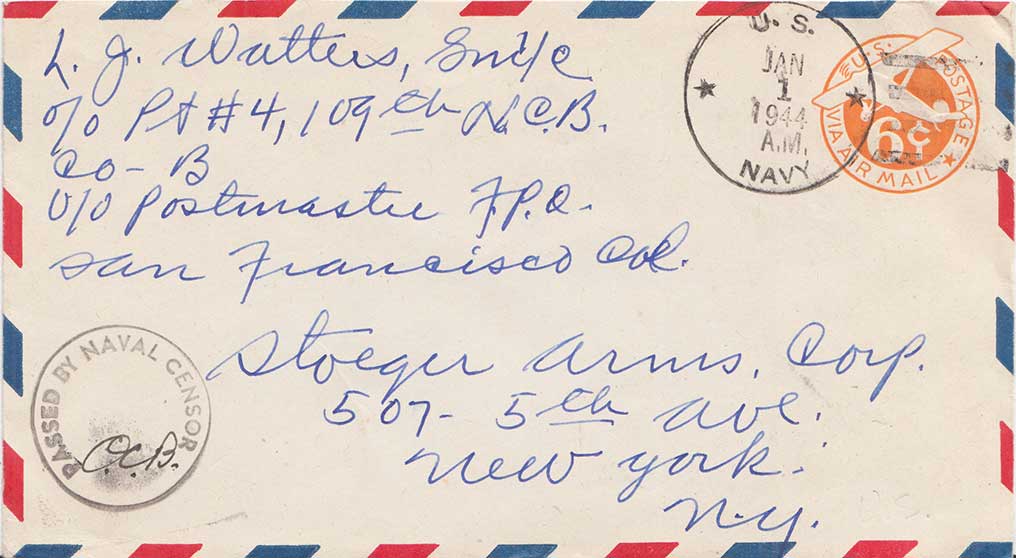 L. J. Watters, Sm1/c
o/o Pt #4, 109th N.C.B.
Co - B
c/o Postmaster F.P.O.
San Francisco Cal.
U. S.
JAN
1
1944
A.M.
NAVY
U.S. POSTAGE
6¢
VIA AIR MAIL
Stoeger Arms. Corp.
507 - 5th Ave.
New York.
N.Y.
PASSED BY NAVAL CENSOR
C.C.B.